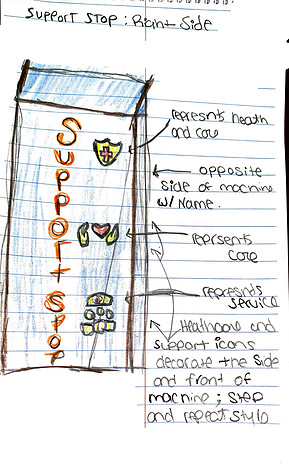 Support Stop : Right Side
Support Stop
represnts health
and care
opposite
side of machine
w/ Name.
reprsents
care
represnts
service
Healthcare and
support icons
decorate the side
and front of
machine ; step
and repeat style